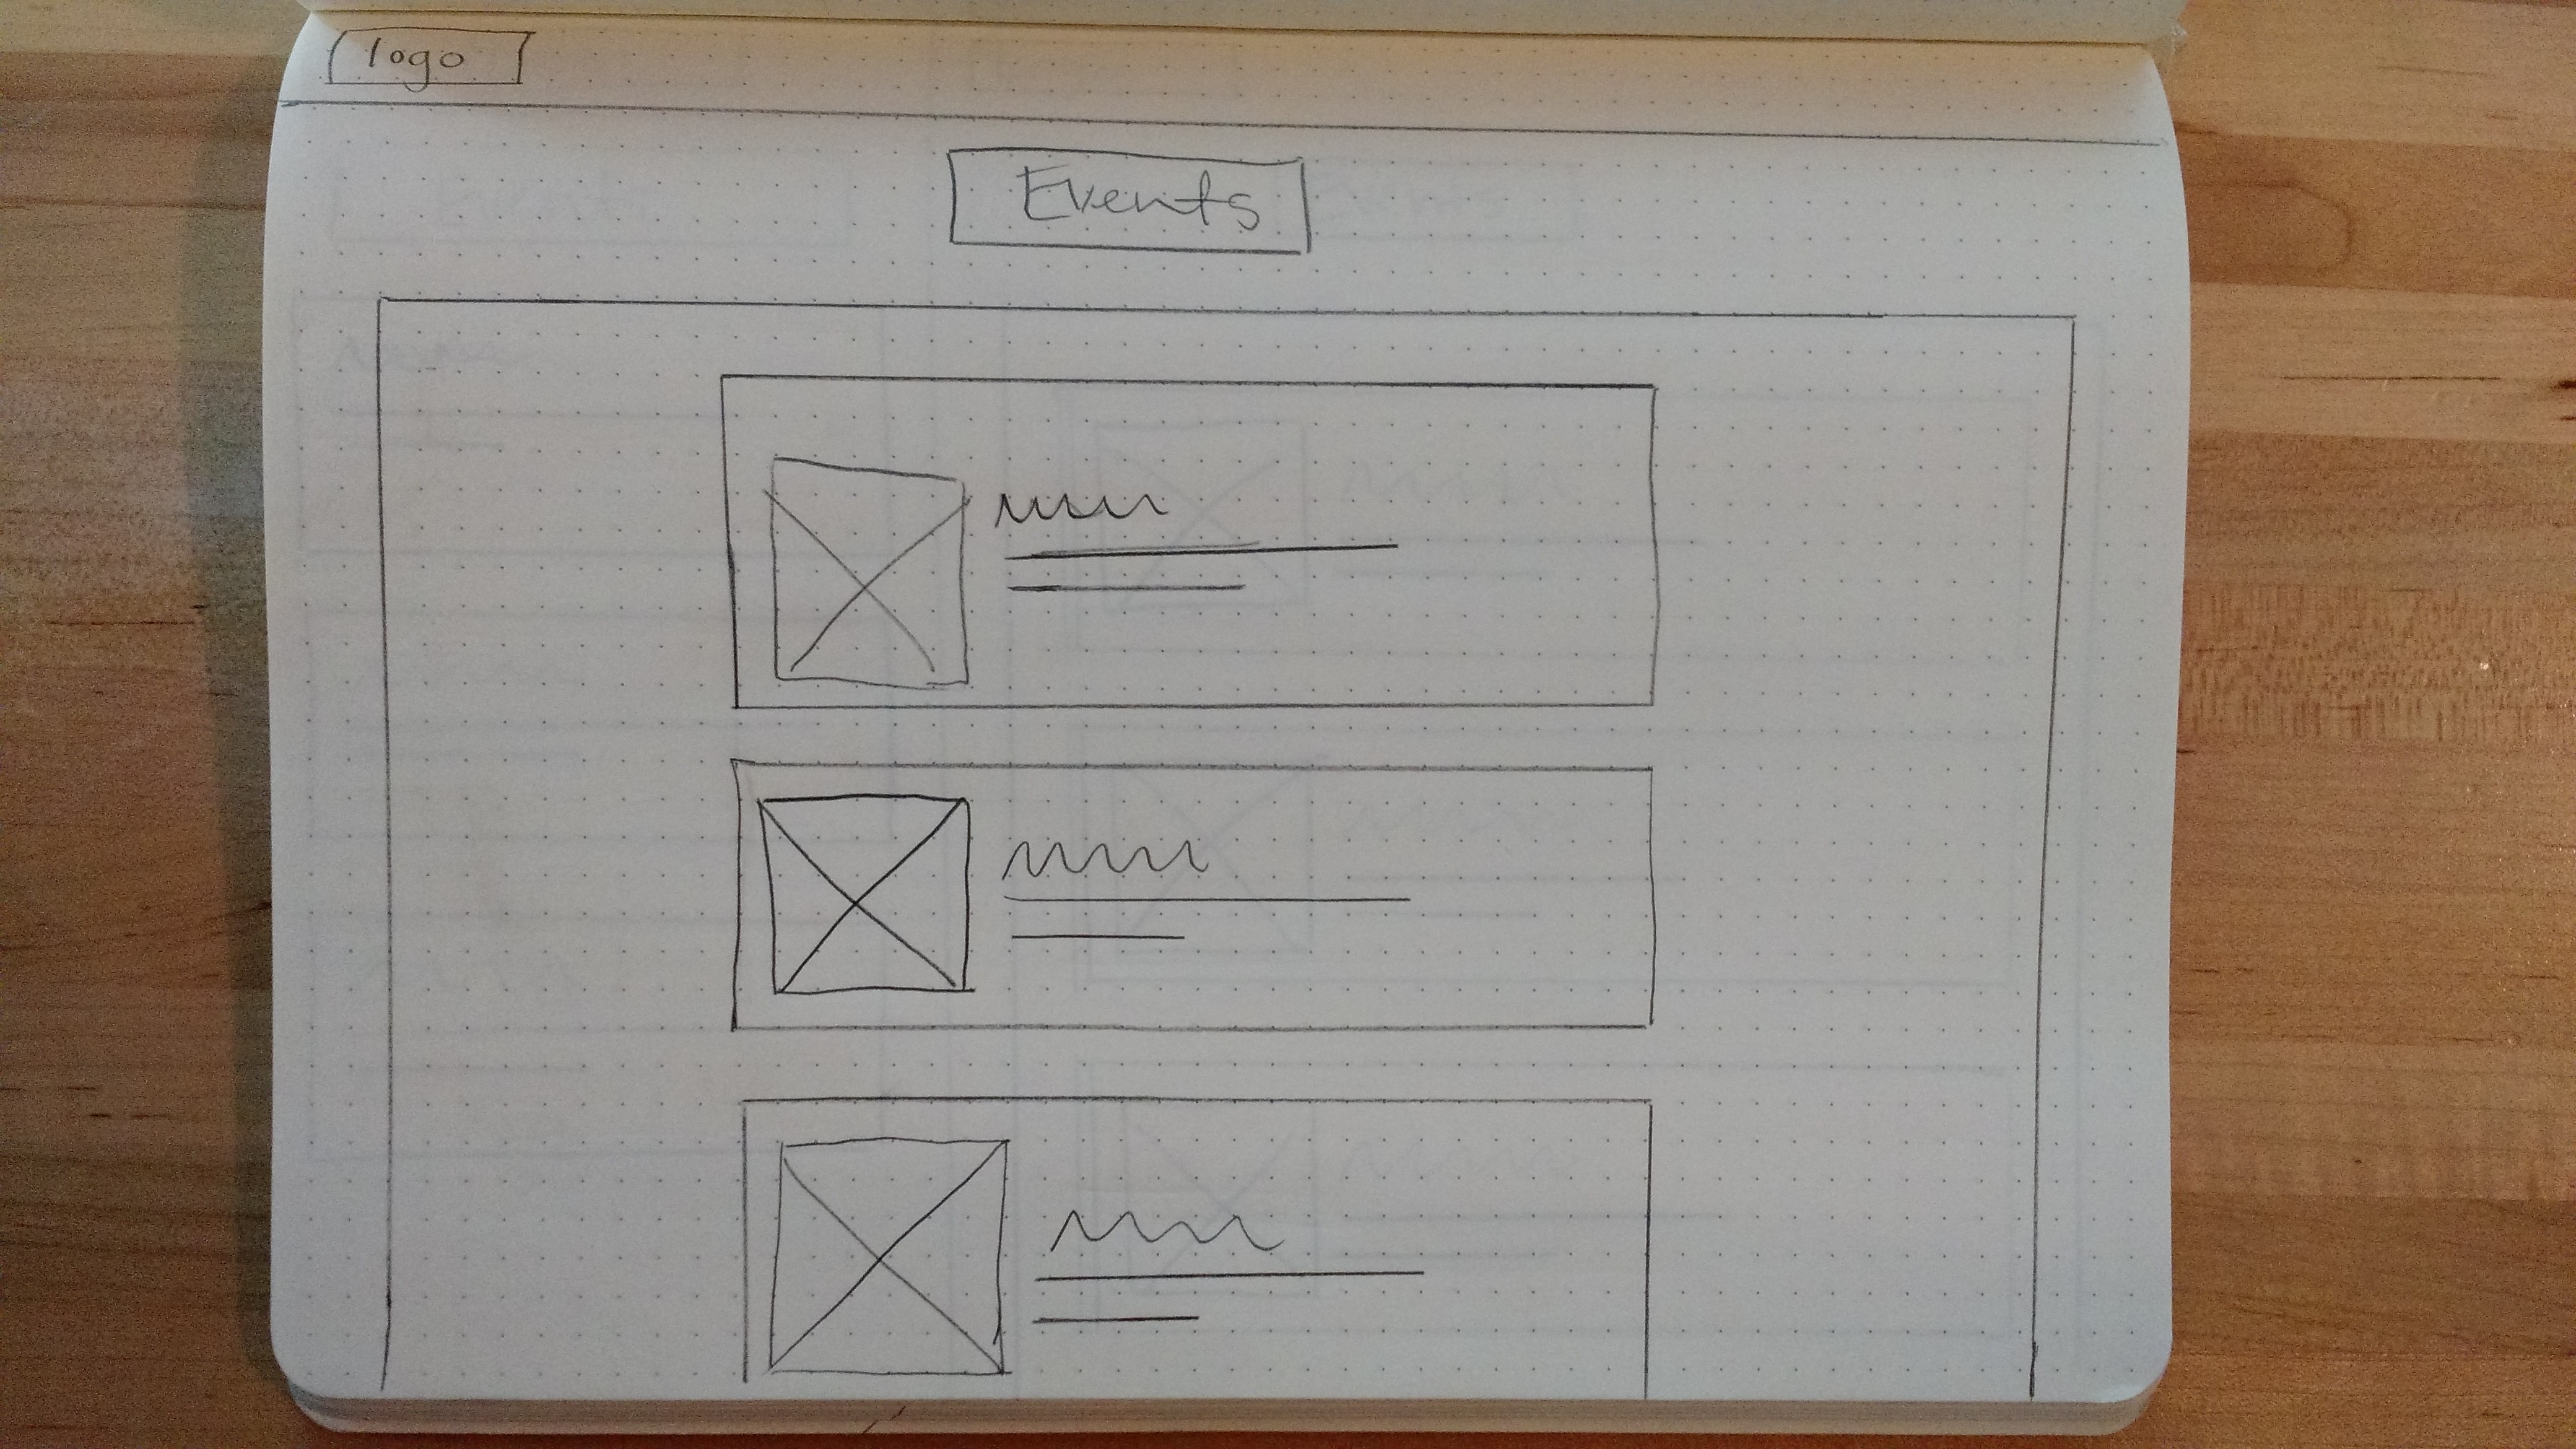 logo
Events